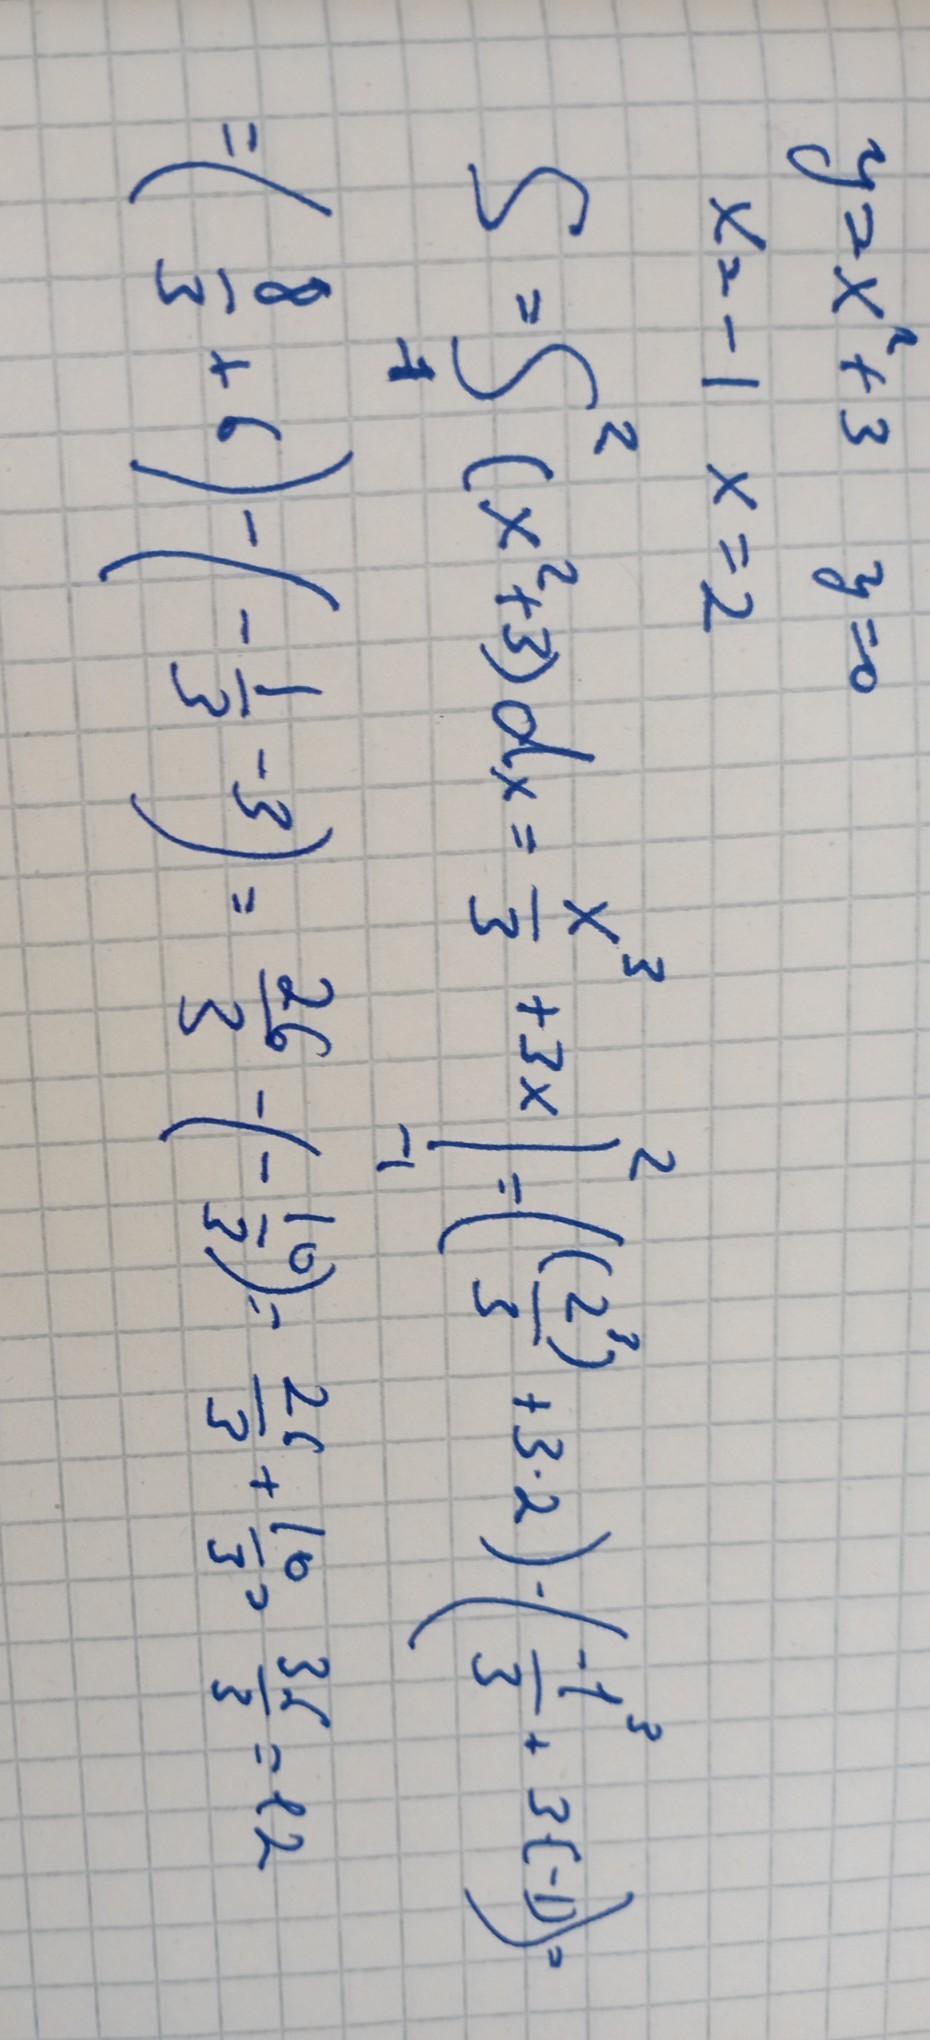 y = x² + 3   y = 0
x = -1   x = 2
S = ∫₋₁² (x² + 3) dx = x³/3 + 3x |₋₁² = ((2³)/3 + 3·2) - (-1³/3 + 3(-1)) =
= (8/3 + 6) - (-1/3 - 3) = 26/3 - (-10/3) = 26/3 + 10/3 = 36/3 = 12